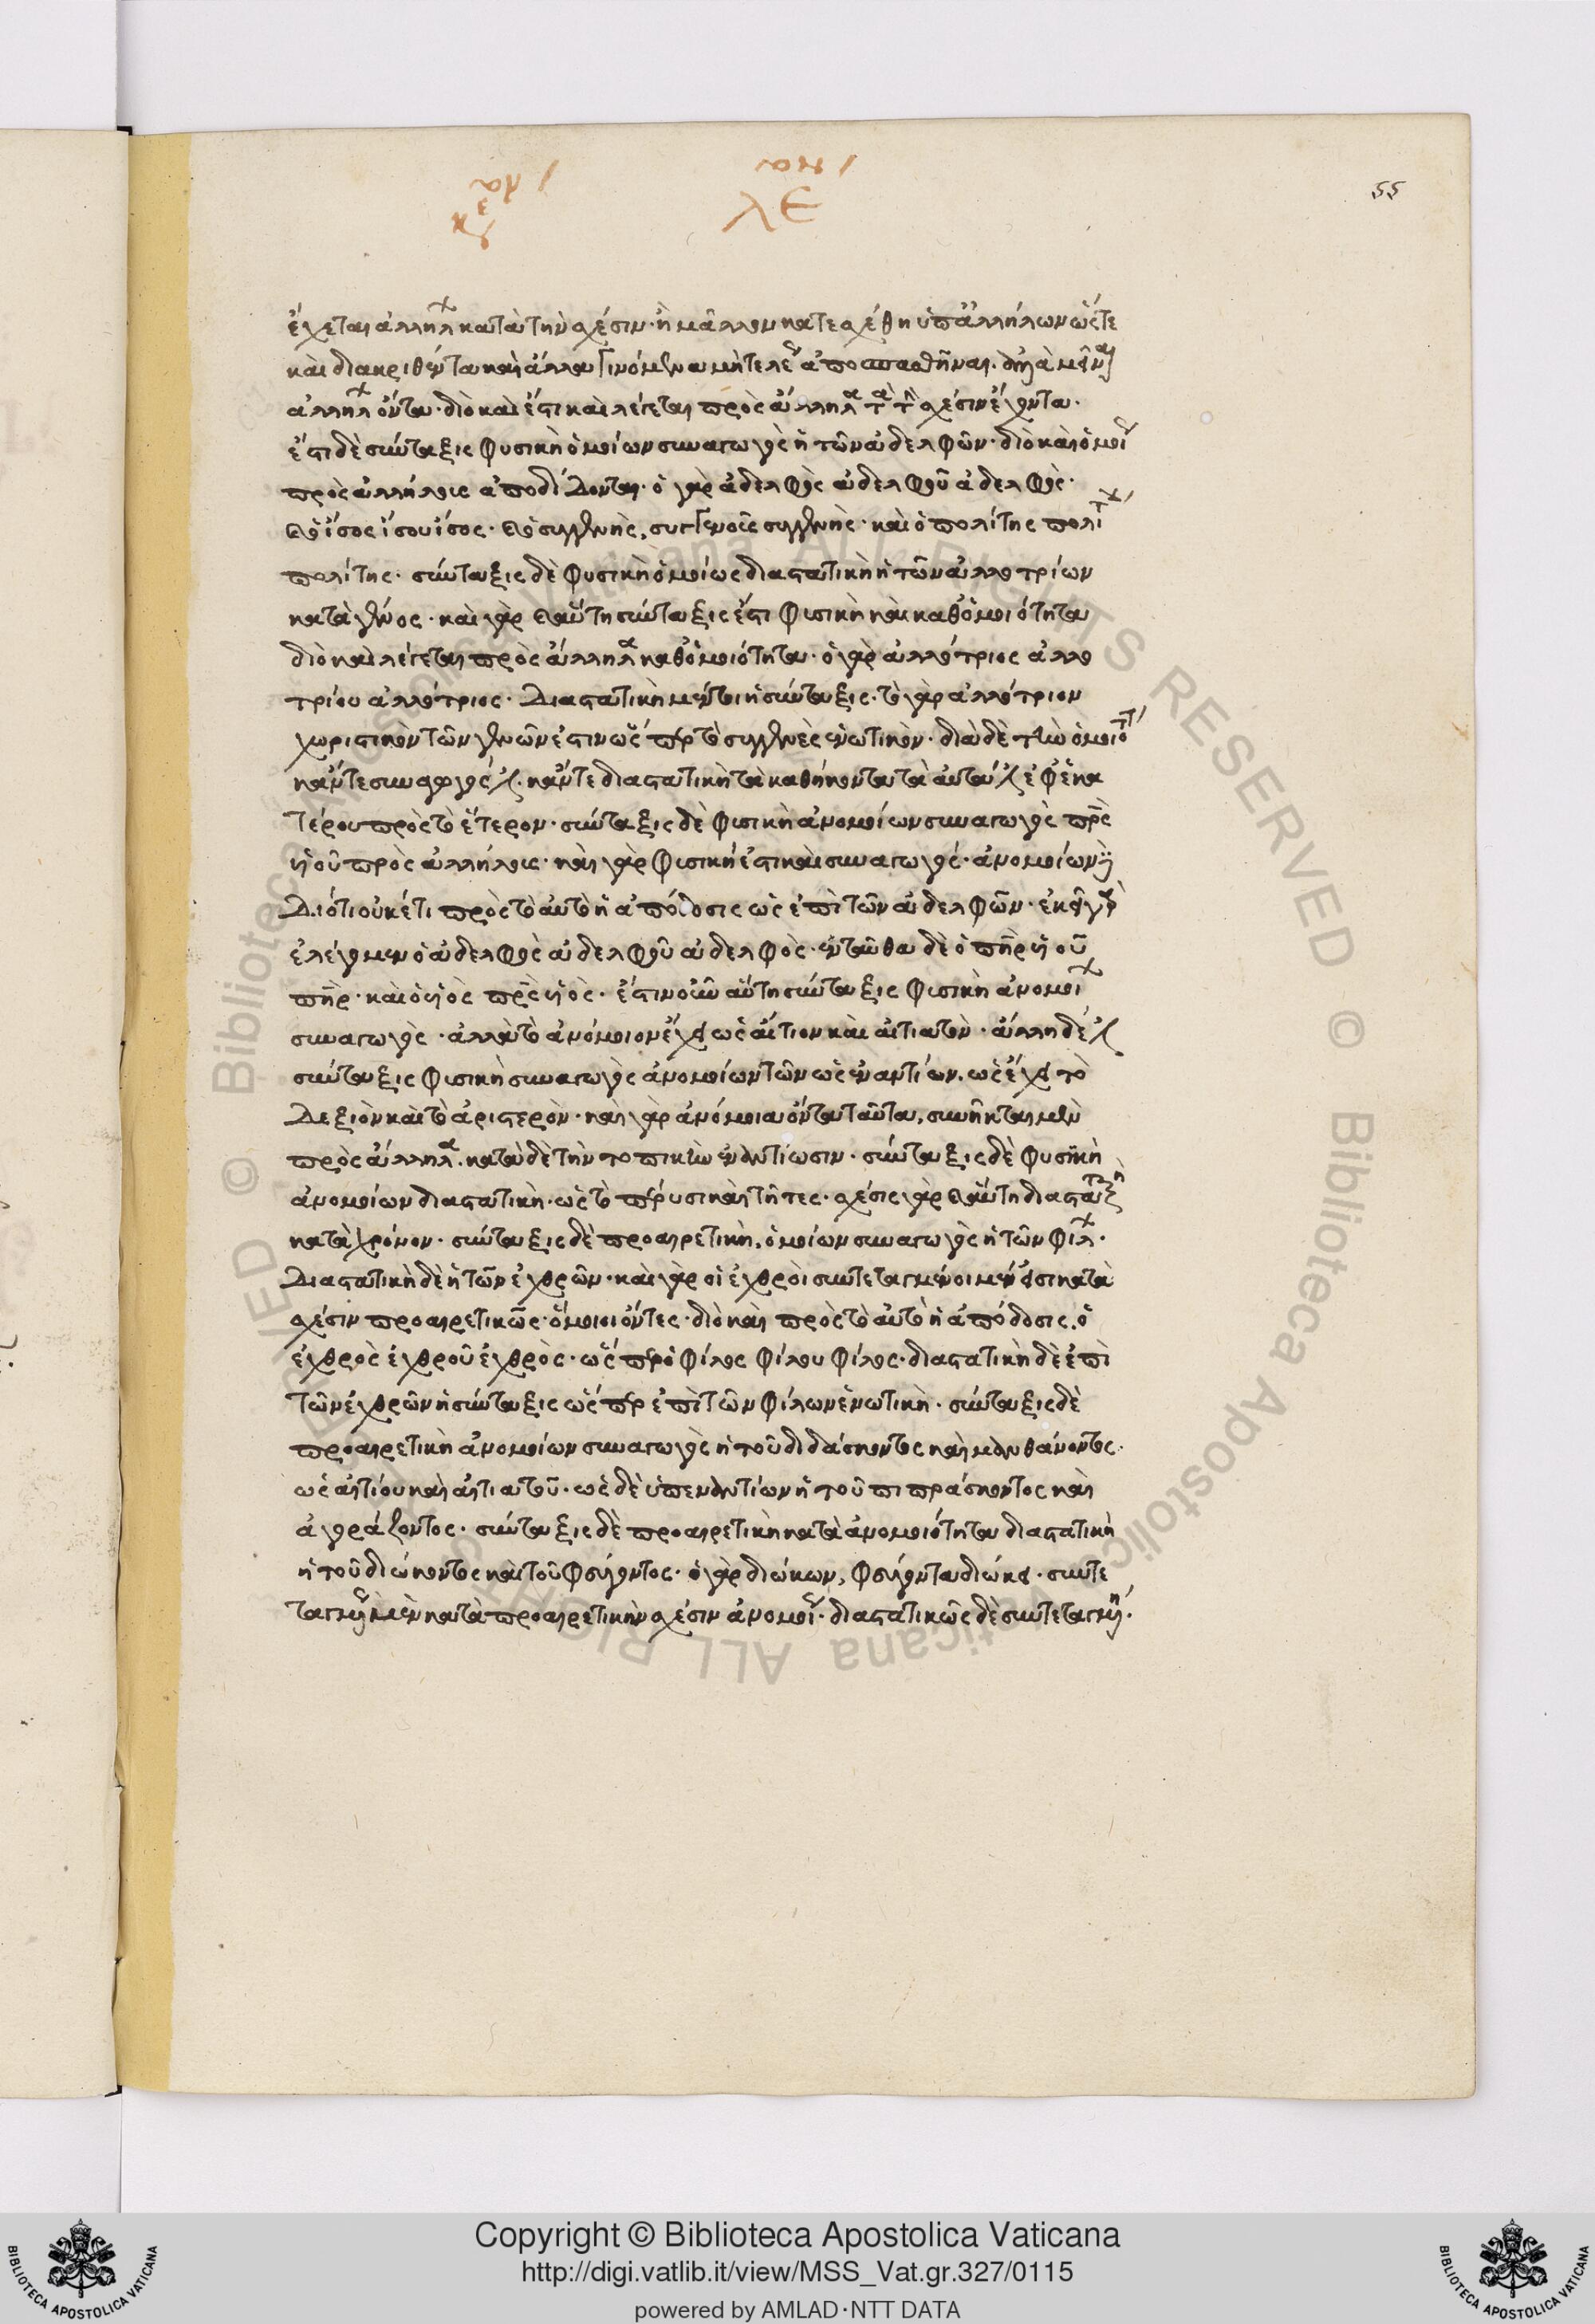 55
ἔχεται ἀλλήλ κατὰ τὴν σχέσιν· ἢ μᾶλλον κατεσχέθη ὑπ ἀλλήλων ὥστε
καὶ διακριθέντα καὶ ἄλλα γινόμενα μὴ τελε ἀποσπασθῆναι.
ἀλληλ ὄντα· διὸ καὶ ἔστι καὶ λέγεται πρὸς ἄλληλα τὰ τὴν σχέσιν ἔχοντα.
ἔστι δὲ σύνταξις φυσικὴ ὁμοίων συναγωγὸς ἡ τῶν ἀδελφῶν· διὸ καὶ ὅμοι
πρὸς ἀλλήλους ἀποδίδονται· ὁ γὰρ ἀδελφὸς ἀδελφοῦ ἀδελφός·
καὶ ὁ ἴσος ἴσου ἴσος· καὶ ὁ συγγενὴς, συγγενοῦς συγγενής· καὶ ὁ πολίτης πολίτ
πολίτης· σύνταξις δὲ φυσικὴ ὁμοίως διαστατικὴ ἡ τῶν ἀλλοτρίων
κατὰ γένος· καὶ γὰρ καὶ αὕτη σύνταξις ἐστι φυσικὴ καὶ καθ ὁμοιότητα
διὸ καὶ λέγεται πρὸς ἄλληλα καθ ὁμοιότητα· ὁ γὰρ ἀλλότριος ἀλλο
τρίου ἀλλότριος· διαστατικὴ μέντοι ἡ σύνταξις· τὸ γὰρ ἀλλότριον
χωριστικὸν τῶν γενῶν ἐστιν ὥσπερ τὸ συγγενὲς ἑνωτικόν· διὰ δὲ τὴν ὁμοιότ
κἄν τε συναφὸς κἄν τε διαστατικὴ τὰ καθήκοντα τὰ αὐτά ἐφ ἑκα
τέρου πρὸς τὸ ἕτερον· σύνταξις δὲ φυσικὴ ἀνομοίων συναγωγὸς πρς
υἱοῦ πρὸς ἀλλήλους· καὶ γὰρ φυσική ἐστι καὶ συναγωγός· ἀνομοίων
διότι οὐκέτι πρὸς τὸ αὐτὸ ἡ ἀπόδοσις ὡς ἐπὶ τῶν ἀδελφῶν· ἐκεῖ γὰρ
ἐλέγομεν ὁ ἀδελφὸς ἀδελφοῦ ἀδελφός· ἐνταῦθα δὲ ὁ πηρ υἱοῦ
πηρ· καὶ ὁ υἱὸς πρς υἱός· ἔστιν οὖν αὕτη σύνταξις φυσικὴ ἀνομοί
συναγωγός· ἀλλὰ τὸ ἀνόμοιον ἔχει ὡς αἴτιον καὶ αἰτιατόν· ἄλλη δέ
σύνταξις φυσικὴ συναγωγὸς ἀνομοίων τῶν ὡς ἐναντίων. ὡς ἔχει τὸ
δεξιὸν καὶ τὸ ἀριστερόν· καὶ γὰρ ἀνόμοια ὄντα ταῦτα, συνῆκται μὲν
πρὸς ἄλληλα. κατὰ δὲ τὴν τοπικὴν ἐναντίωσιν· σύνταξις δὲ φυσικὴ
ἀνομοίων διαστατικὴ· ὡς τὸ πέρυσι καὶ τῆτες· σχέσις γὰρ καὶ αὕτη
κατὰ χρόνον· σύνταξις δὲ προαιρετικὴ, ὁμοίων συναγωγὸς ἡ τῶν φίλ.
διαστατικὴ δὲ ἡ τῶν ἐχθρῶν· καὶ γὰρ οἱ ἐχθροὶ συντεταγμένοι μέν εἰσι κατὰ
σχέσιν προαιρετικῶς ὅμοιοι ὄντες· διὸ καὶ πρὸς τὸ αὐτὸ ἡ ἀπόδοσις. ὁ
ἐχθρὸς ἐχθροῦ ἐχθρός· ὥσπερ ὁ φίλος φίλου φίλος· διαστατικὴ δὲ ἐπὶ
τῶν ἐχθρῶν ἡ σύνταξις ὥσπερ ἐπὶ τῶν φίλων ἑνωτική· σύνταξις δὲ
προαιρετικὴ ἀνομοίων συναγωγὸς ἡ τοῦ διδάσκοντος καὶ μανθάνοντος.
ὡς αἰτίου καὶ αἰτιατοῦ· ὡς δὲ ὑπεναντίων ἡ τοῦ πιπράσκοντος καὶ
ἀγοράζοντος· σύνταξις δὲ προαιρετικὴ κατὰ ἀνομοιότητα διαστατικὴ
ἡ τοῦ διώκοντος καὶ τοῦ φεύγοντος· ὁ γὰρ διώκων, φεύγοντα διώκει· συντε
ταγμεν μὲν κατὰ προαιρετικὴν σχέσιν ἀνομοί· διαστατικῶς δὲ συντεταγμέ.
© Biblioteca Apostolica Vaticana ALL RIGHTS RESERVED © Biblioteca Apostolica Vaticana ALL RIGHTS RESERVED
Copyright © Biblioteca Apostolica Vaticana
http://digi.vatlib.it/view/MSS_Vat.gr.327/0115
powered by AMLAD·NTT DATA
BIBLIOTECA APOSTOLICA VATICANA
BIBLIOTECA APOSTOLICA VATICANA